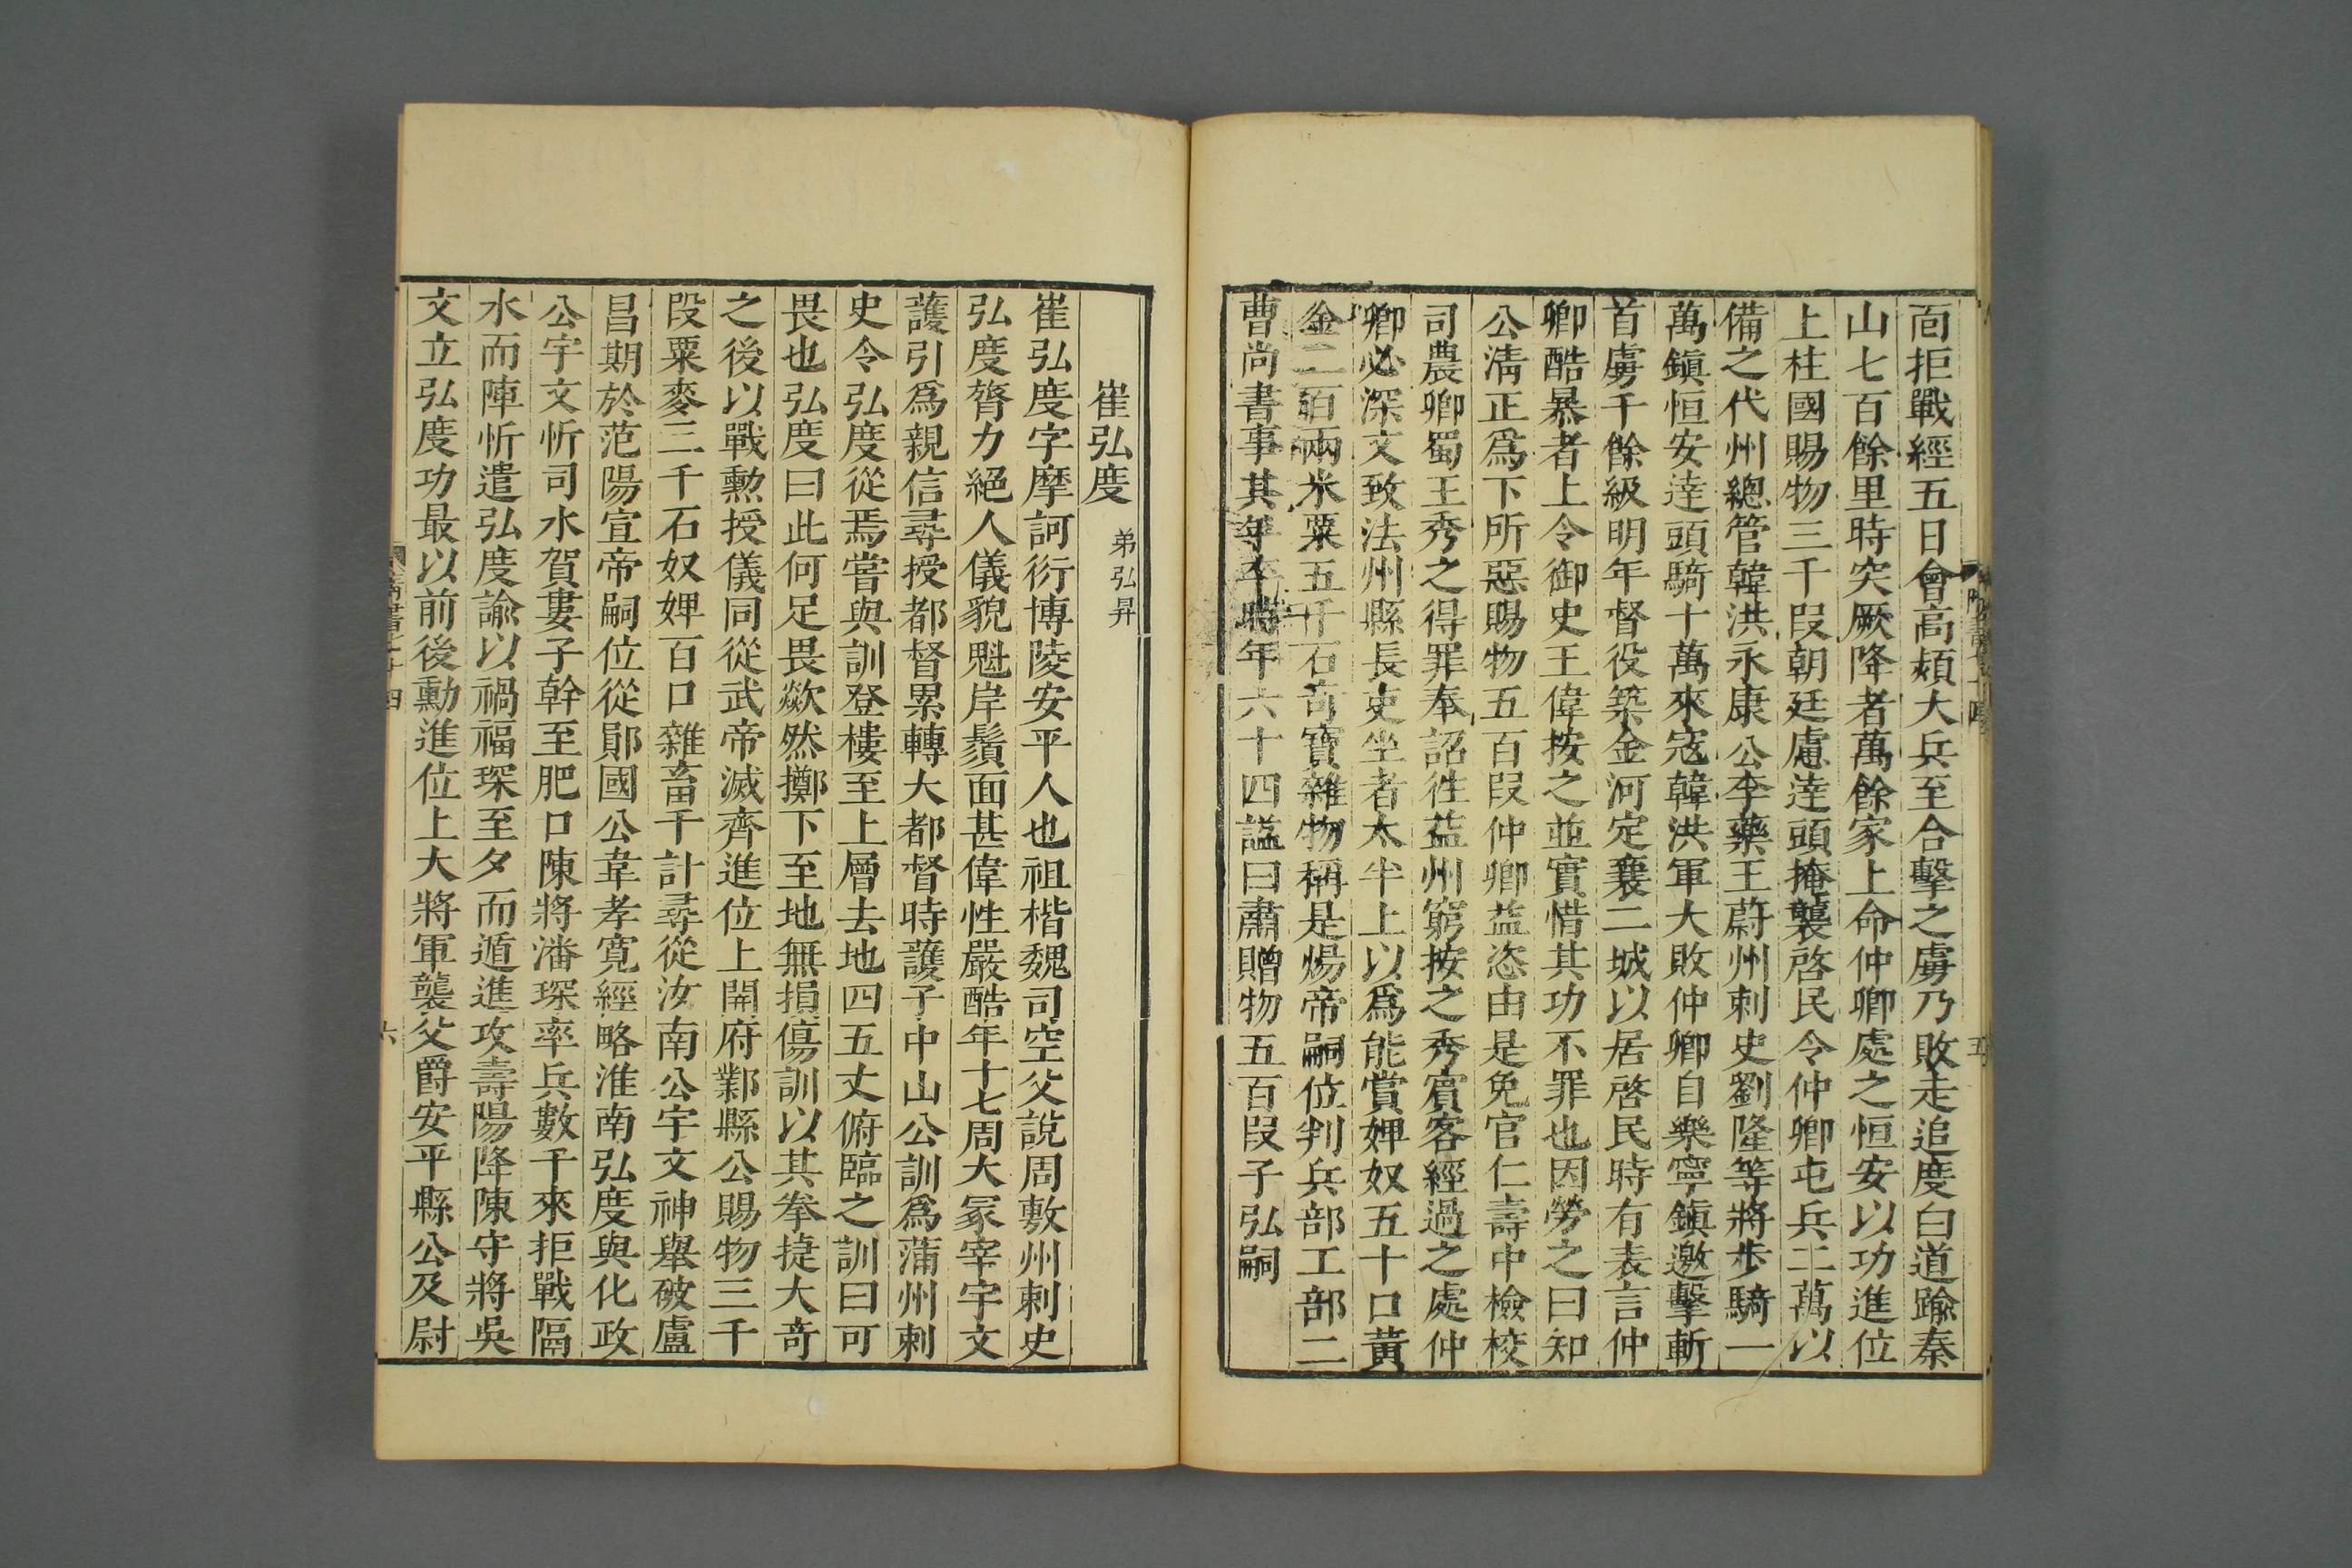 面拒戰經五日會高熲大兵至合擊之虜乃敗走追度白道踰秦
山七百餘里時突厥降者萬餘家上命仲卿處之恒安以功進位
上柱國賜物三千段朝廷慮達頭掩襲啓民令仲卿屯兵二萬以
備之代州總管韓洪永康公李藥王蔚州刺史劉隆等將步騎一
萬鎮恒安達頭騎十萬來寇韓洪軍大敗仲卿自樂寧鎮邀擊斬
首虜千餘級明年督役築金河定襄二城以居啓民時有表言仲
卿酷暴者上令御史王偉按之並實惜其功不罪也因勞之曰知
公清正爲下所惡賜物五百段仲卿益恣由是免官仁壽中檢校
司農卿蜀王秀之得罪奉詔往益州窮按之秀賓客經過之處仲
卿必深文致法州縣長吏坐者太半上以爲能賞婢奴五十口黃
金二百兩米粟五千石奇寶雜物稱是煬帝嗣位判兵部工部二
曹尚書事其年卒時年六十四謚曰肅贈物五百段子弘嗣
崔弘度 弟弘昇
崔弘度字摩訶衍博陵安平人也祖楷魏司空父說周敷州刺史
弘度膂力絕人儀貌魁岸鬚面甚偉性嚴酷年十七周大冢宰宇文
護引爲親信尋授都督累轉大都督時護子中山公訓爲蒲州刺
史令弘度從焉嘗與訓登樓至上層去地四五丈俯臨之訓曰可
畏也弘度曰此何足畏歘然擲下至地無損傷訓以其拳捷大奇
之後以戰勲授儀同從武帝滅齊進位上開府鄴縣公賜物三千
段粟麥三千石奴婢百口雜畜千計尋從汝南公宇文神舉破盧
昌期於范陽宣帝嗣位從鄖國公韋孝寬經略淮南弘度與化政
公宇文忻司水賀婁子幹至肥口陳將潘琛率兵數千來拒戰隔
水而陣忻遣弘度諭以禍福琛至夕而遁進攻壽陽降陳守將吳
文立弘度功最以前後勳進位上大將軍襲父爵安平縣公及尉
六